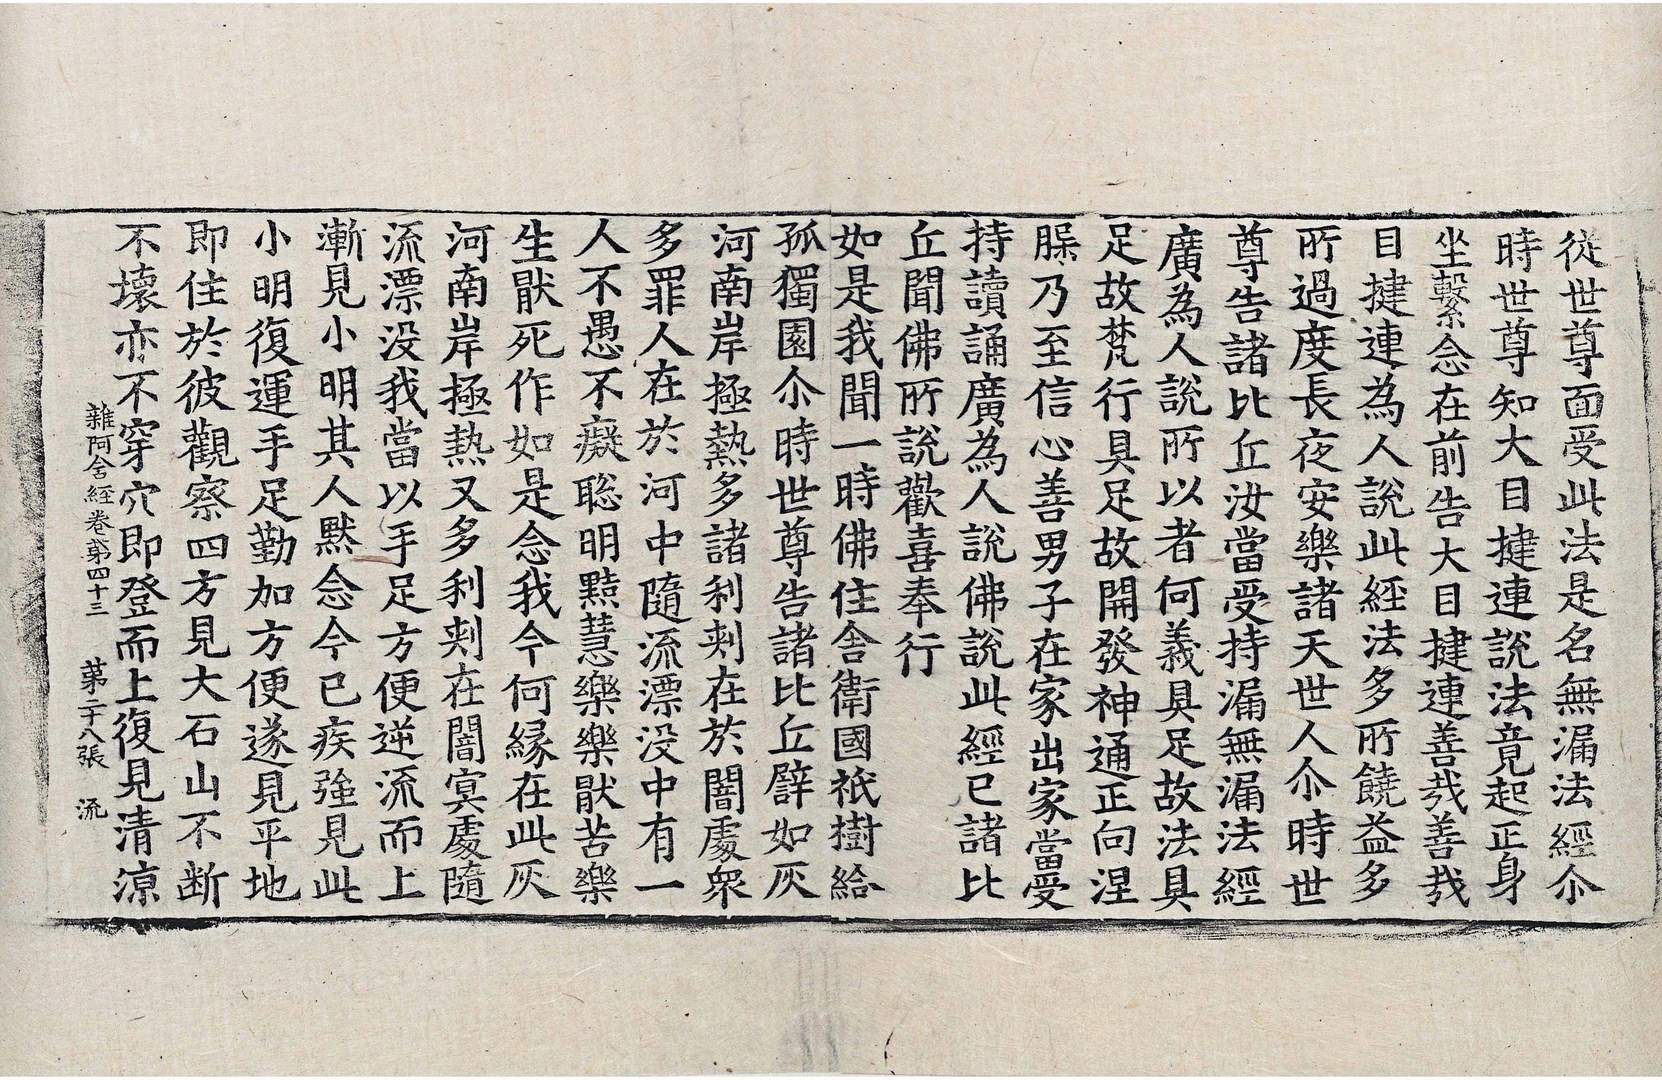 從世尊面受此法是名無漏法經尒
時世尊知大目揵連說法竟起正身
坐繫念在前告大目揵連善㢤善㢤
目揵連為人說此経法多所饒益多
所過度長夜安樂諸天世人尒時世
尊告諸比丘汝當受持漏無漏法經
廣為人說所以者何義具足故法具
足故梵行具足故開發神通正向涅
槃乃至信心善男子在家出家當受
持讀誦廣為人說佛說此經已諸比
丘聞佛所說歡喜奉行
如是我聞一時佛住舎衛國祇樹給
孤獨園尒時世尊告諸比丘譬如灰
河南岸極熱多諸利刺在於闇處衆
多罪人在於河中隨流漂没中有一
人不愚不癡聡明黠慧樂樂猒苦樂
生猒死作如是念我今何縁在此灰
河南岸極熱又多利刺在闇冥處隨
流漂没我當以手足方便逆流而上
漸見小明其人默念今已疾強見此
小明復運手足勤加方便遂見平地
即住於彼觀察四方見大石山不断
不壞亦不穿穴即登而上復見清涼
雜阿含経卷第四十三 苐二十八張 流